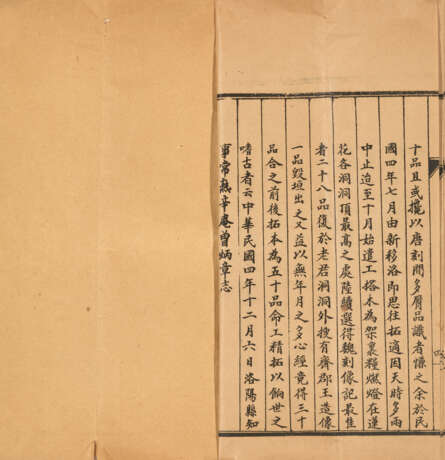 十品且或攙以唐刻間多贋品識者慊之余於民
國四年七月由新移洛即思往拓適因天時多雨
中止迨至十月始遣工搭本為架裹糧燃燈在蓮
花各洞洞頂最高之處陸續選得魏刻像記最佳
者二十八品復於老君洞洞外搜有齊郡王造像
一品毀垣出之又益以無年月之多心經竟得三十
品合之前後拓本為五十品命工精拓以餉世之
嗜古者云中華民國四年十二月六日洛陽縣知
事常熟辛庵曾炳章志